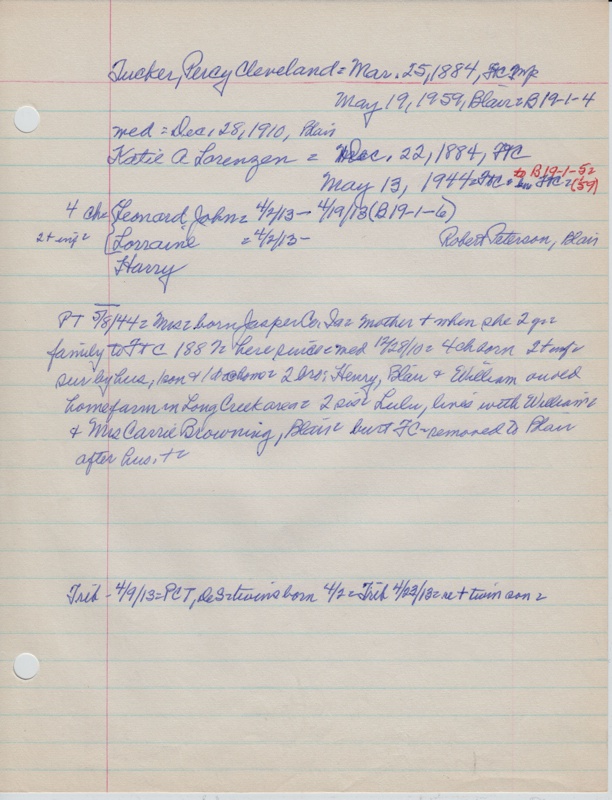 Tucker, Percy Cleveland = Mar. 25, 1884, FtC
May 19, 1959, Blair = B 19-1-4
med = Dec. 28, 1910, Blair
Katie A Lorenzen = Dec. 22, 1884, FtC
to B 19-1-5 =
May 13, 1944 = FtC = bur FtC = (59)
4 ch = Leonard John = 4/2/13 - 4/19/13 (B 19-1-6)
2 + inf = Lorraine = 4/2/13 - Robert Peterson, Blair
Harry
PT 5/8/44 = Mrs = born Jasper Co. Ia = mother + when she 2 y =
family to FtC 1887 = here since = med 12/28/10 = 4 ch born 2 + inf =
sur by hus, 1 son & 1 d @ home = 2 bro: Henry, Blair & William on old
home farm in Long Creek area = 2 sis = Lulu, lives with William =
& Mrs Carrie Browning, Blair = bur FC - removed to Blair
after hus. + =
Trib - 4/9/13 = PCT, DeS = twins born 4/2 = Trib 4/23/13 = re + twin son =